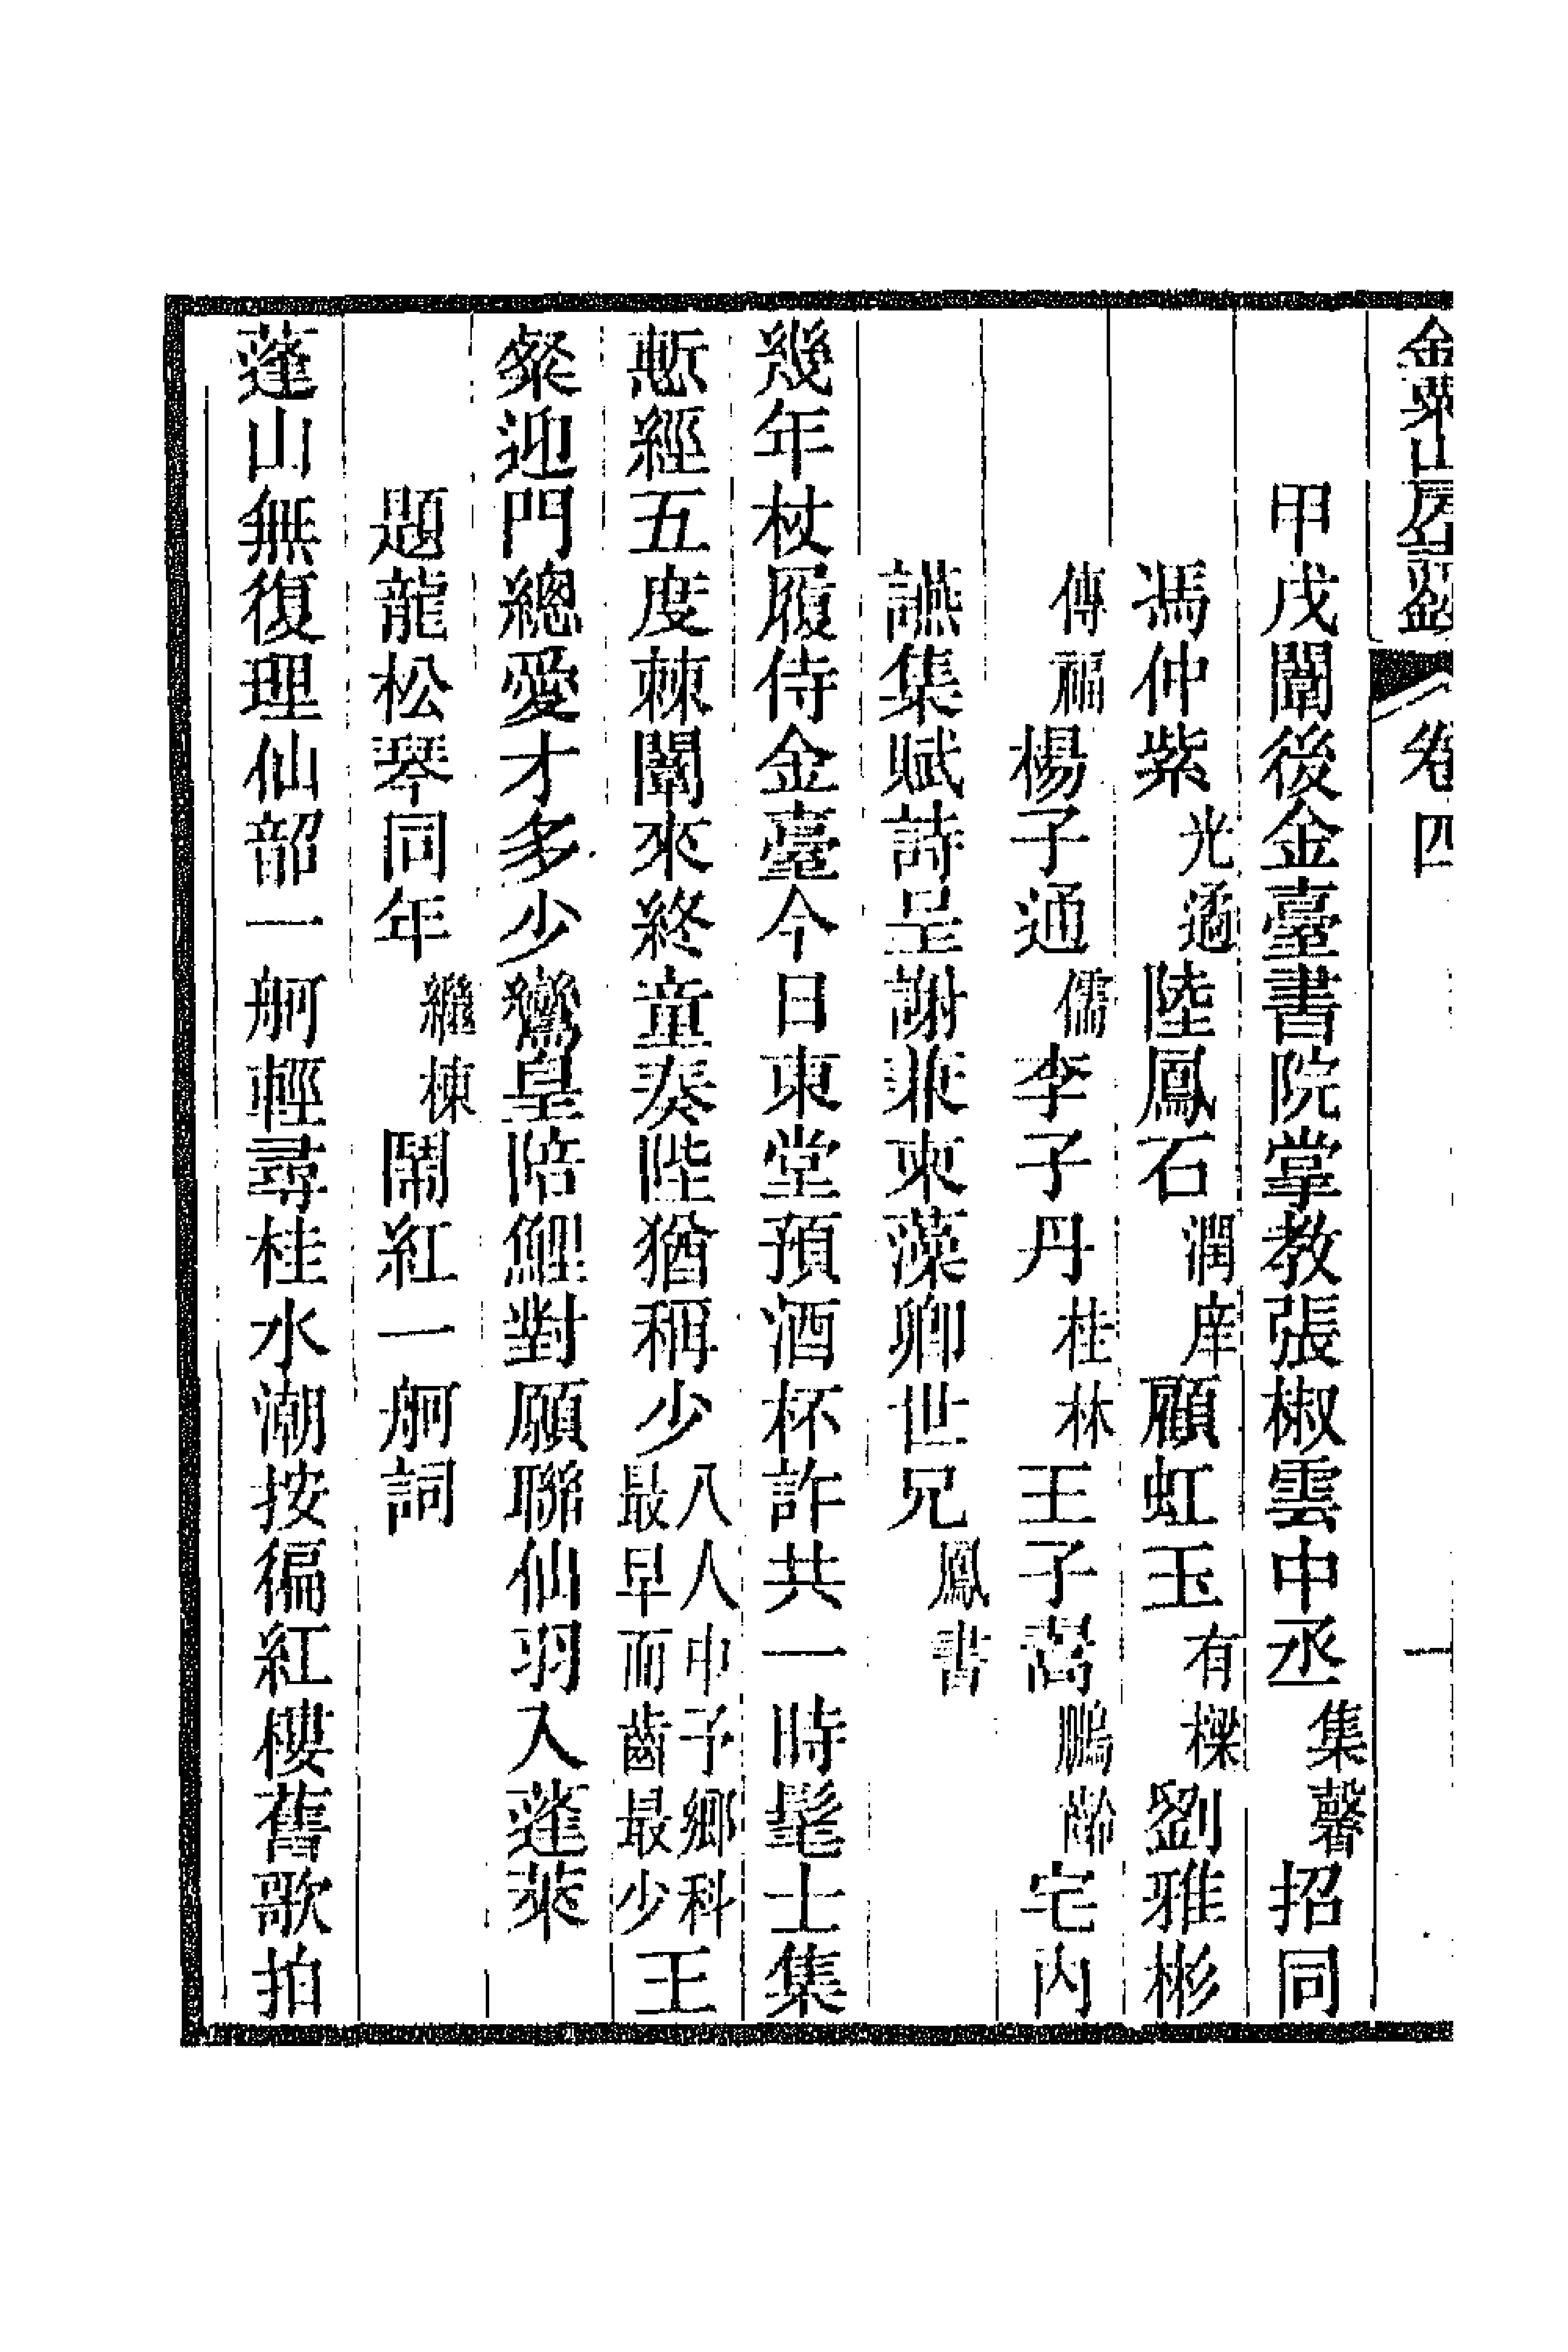 金粟山房詩鈔 卷四 一
甲戌闈後金臺書院掌教張椒雲中丞集馨招同
馮仲紫光遹陸鳳石潤庠顧虹玉有樑劉雅彬
傳福楊子通儒李子丹桂林王子嵩鵬齡宅內
讌集賦詩呈謝兼柬藻卿世兄鳳書
幾年杖履侍金臺今日東堂預酒杯許共一時髦士集
慙經五度棘闈來終童奏陛猶稱少八人中子鄉科最早而齒最少王
粲迎門總愛才多少鸞皇陪鯉對願聯仙羽入蓬萊
題龍松琴同年繼棟鬧紅一舸詞
蓬山無復理仙韶一舸輕尋桂水潮按徧紅樓舊歌拍